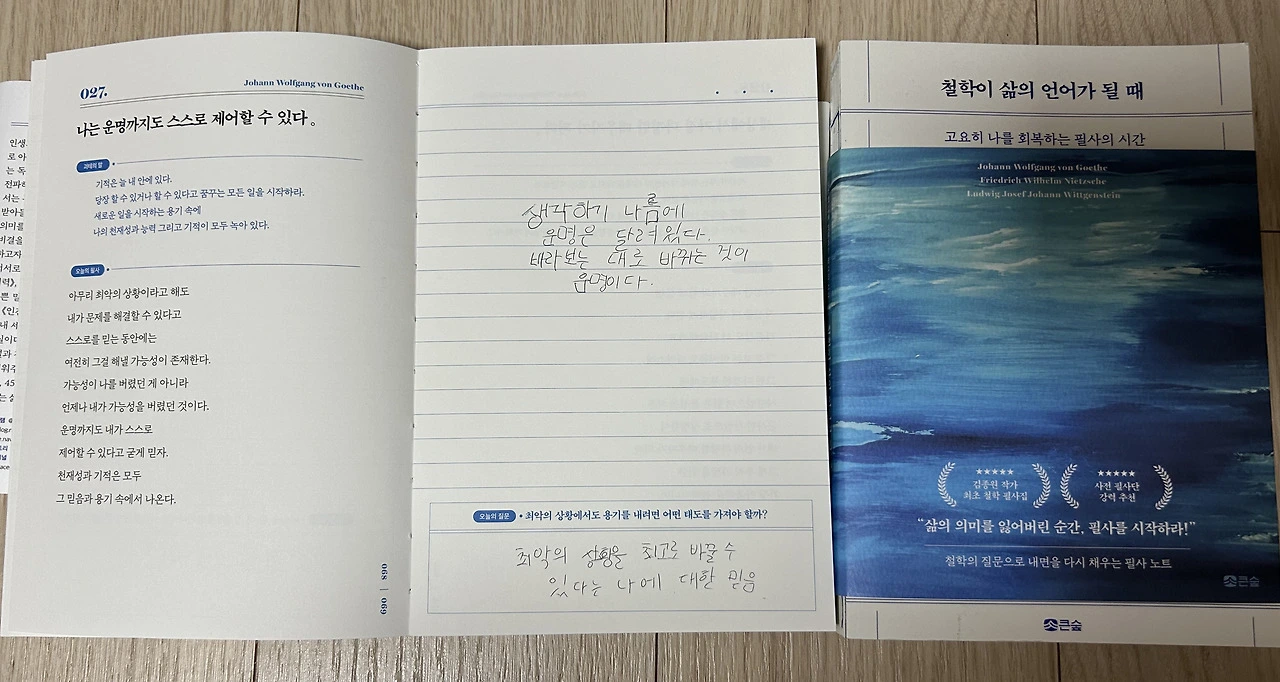 027.
Johann Wolfgang von Goethe
나는 운명까지도 스스로 제어할 수 있다.
괴테의 말
기적은 늘 내 안에 있다.
당장 할 수 있거나 할 수 있다고 꿈꾸는 모든 일을 시작하라.
새로운 일을 시작하는 용기 속에
나의 천재성과 능력 그리고 기적이 모두 녹아 있다.
오늘의 필사
아무리 최악의 상황이라고 해도
내가 문제를 해결할 수 있다고
스스로를 믿는 동안에는
여전히 그걸 해낼 가능성이 존재한다.
가능성이 나를 버렸던 게 아니라
언제나 내가 가능성을 버렸던 것이다.
운명까지도 내가 스스로
제어할 수 있다고 굳게 믿자.
천재성과 기적은 모두
그 믿음과 용기 속에서 나온다.
068 | 069
생각하기 나름에
운명은 달려있다.
바라보는 대로 바뀌는 것이
운명이다.
오늘의 질문 • 최악의 상황에서도 용기를 내려면 어떤 태도를 가져야 할까?
최악의 상황을 최고로 바꿀 수
있다는 나에 대한 믿음
철학이 삶의 언어가 될 때
고요히 나를 회복하는 필사의 시간
Johann Wolfgang von Goethe
Friedrich Wilhelm Nietzsche
Ludwig Josef Johann Wittgenstein
★★★★★
김종원 작가
최초 철학 필사집
★★★★★
사전 필사단
강력 추천
“삶의 의미를 잃어버린 순간, 필사를 시작하라!”
철학의 질문으로 내면을 다시 채우는 필사 노트
큰숲
큰숲